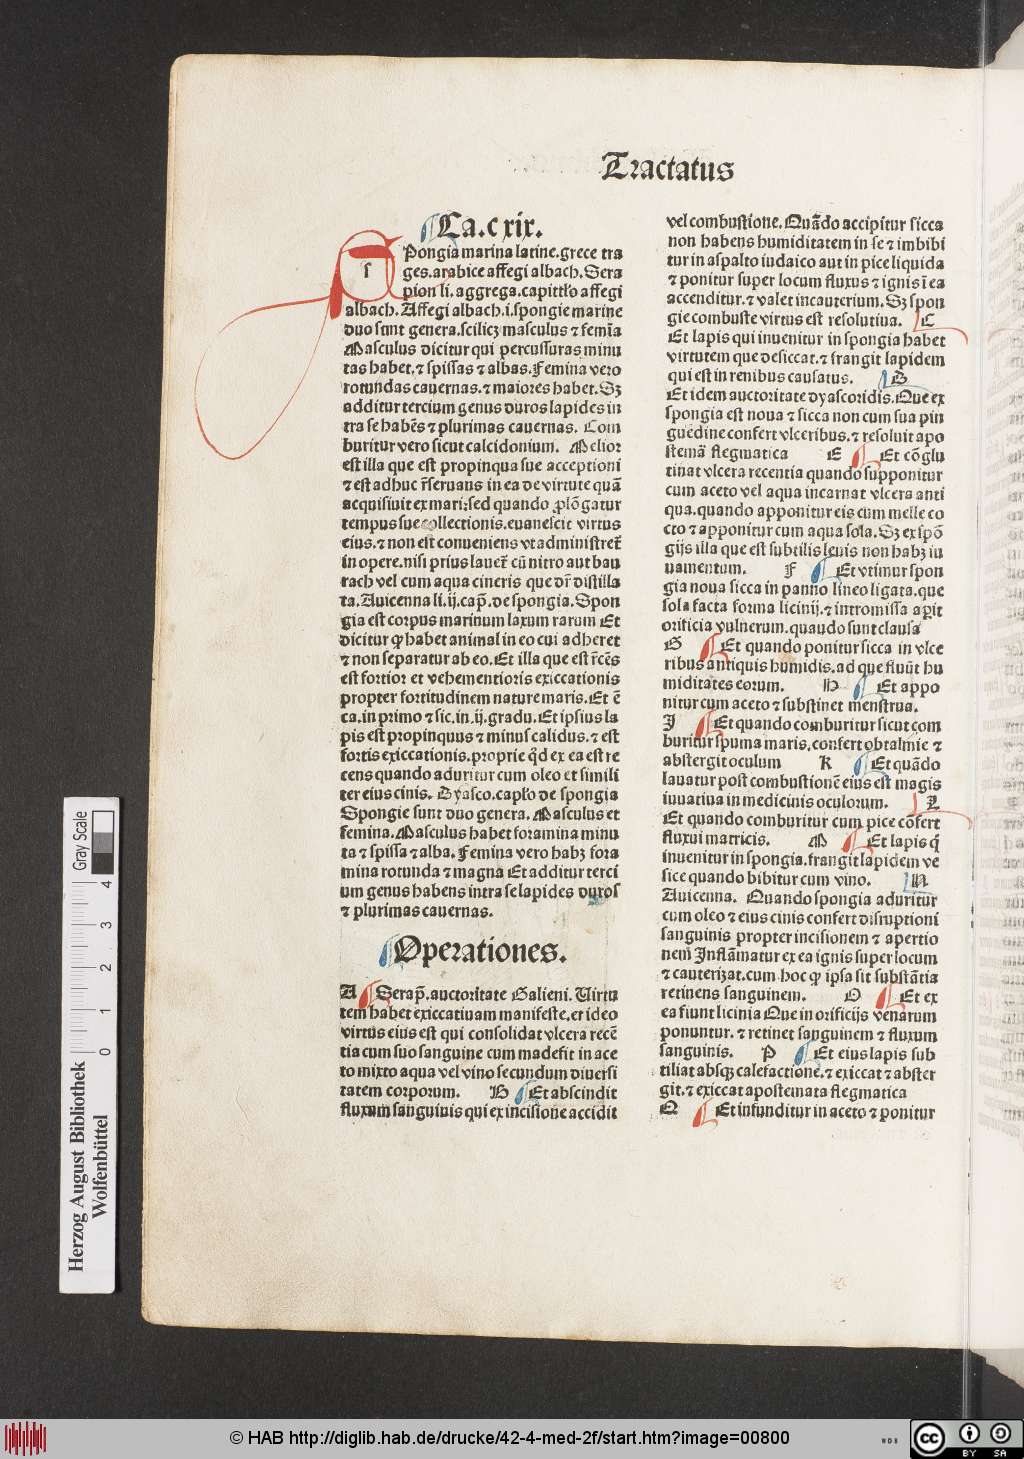 Tractatus
Ca. c xix.
s
Pongia marina latine. grece tra
ges. arabice affegi albach. Sera
pion li. aggrega. capittło affegi
albach. Affegi albach. i. spongie marine
duo sunt genera. scilicꝫ masculus ⁊ femīa
Masculus dicitur qui percussuras minu
tas habet. ⁊ spissas ⁊ albas. Femina vero
rotundas cauernas. ⁊ maiores habet. Sꝫ
additur tercium genus duros lapides in
tra se habēs ⁊ plurimas cauernas. Com
buritur vero sicut calcidonium. Melior
est illa que est propinqua sue acceptioni
⁊ est adhuc r̄seruans in ea de virtute quā
acquisiuit ex mari: sed quando ꝓlōgatur
tempus sue collectionis. euanescit virtus
eius. ⁊ non est conueniens vt administret̄
in opere. nisi prius lauet̄ cū nitro aut bau
rach vel cum aqua cineris que dr̄ distilla
ta. Auicenna li. ij. cap̄. de spongia. Spon
gia est corpus marinum laxum rarum Et
dicitur ꝙ habet animal in eo cui adheret
⁊ non separatur ab eo. Et illa que est r̄cēs
est fortior et vehementioris exiccationis
propter fortitudinem nature maris. Et ē
ca. in primo ⁊ sic. in. ij. gradu. Et ipsius la
pis est propinquus ⁊ minus calidus. ⁊ est
fortis exiccationis. proprie qd̄ ex ea est re
cens quando aduritur cum oleo et simili
ter eius cinis. Dyasco. capło de spongia
Spongie sunt duo genera. Masculus et
femina. Masculus habet foramina minu
ta ⁊ spissa ⁊ alba. Femina vero habꝫ fora
mina rotunda ⁊ magna Et additur terci
um genus habens intra se lapides duros
⁊ plurimas cauernas.
Operationes.
A Serap̄. auctoritate Galieni. Uirtu
tem habet exiccatiuam manifeste. et ideo
virtus eius est qui consolidat vlcera recē
tia cum suo sanguine cum madefit in ace
to mixto aqua vel vino secundum diuersi
tatem corporum. B Et abscindit
fluxum sanguinis qui ex incisione accidit
vel combustione. Quādo accipitur sicca
non habens humiditatem in se ⁊ imbibi
tur in aspalto iudaico aut in pice liquida
⁊ ponitur super locum fluxus ⁊ ignis ī ea
accenditur. ⁊ valet incauterium. Sꝫ spon
gie combuste virtus est resolutiua. C
Et lapis qui inuenitur in spongia habet
virtutem que desiccat. ⁊ frangit lapidem
qui est in renibus causatus. D
Et idem auctoritate dyascoridis. Que ex
spongia est noua ⁊ sicca non cum sua pin
guēdine confert vlceribus. ⁊ resoluit apo
stemā flegmatica E Et cōglu
tinat vlcera recentia quando supponitur
cum aceto vel aqua incarnat vlcera anti
qua. quando apponitur eis cum melle co
cto ⁊ apponitur cum aqua sola. Sꝫ ex spō
gijs illa que est subtilis leuis non habꝫ iu
uamentum. F Et vtimur spon
gia noua sicca in panno lineo ligata. que
sola facta forma licinij. ⁊ intromissa aꝑit
orificia vulnerum. quando sunt clausa
G Et quando ponitur sicca in vlce
ribus antiquis humidis. ad que fluūt hu
miditates eorum. H Et appo
nitur cum aceto ⁊ substinet menstrua.
I Et quando comburitur sicut com
buritur spuma maris. confert obtalmie ⁊
abstergit oculum K Et quādo
lauatur post combustionē eius est magis
iuuatiua in medicinis oculorum. L
Et quando comburitur cum pice cōfert
fluxui matricis. M Et lapis q̄
inuenitur in spongia. frangit lapidem ve
sice quando bibitur cum vino. N
Auicenna. Quando spongia aduritur
cum oleo ⁊ eius cinis confert disruptioni
sanguinis propter incisionem ⁊ apertio
nem̄ Inflāmatur ex ea ignis super locum
⁊ cauterizat. cum hoc ꝙ ipsa sit substātia
retinens sanguinem. O Et ex
ea fiunt licinia Que in orificijs venarum
ponuntur. ⁊ retinet sanguinem ⁊ fluxum
sanguinis. P Et eius lapis sub
tiliat absqꝫ calefactione. ⁊ exiccat ⁊ abster
git. ⁊ exiccat apostemata flegmatica
Q Et infunditur in aceto ⁊ ponitur
Gray Scale
0 1 2 3 4
Herzog August Bibliothek
Wolfenbüttel
© HAB http://diglib.hab.de/drucke/42-4-med-2f/start.htm?image=00800
WDB
cc
BY SA